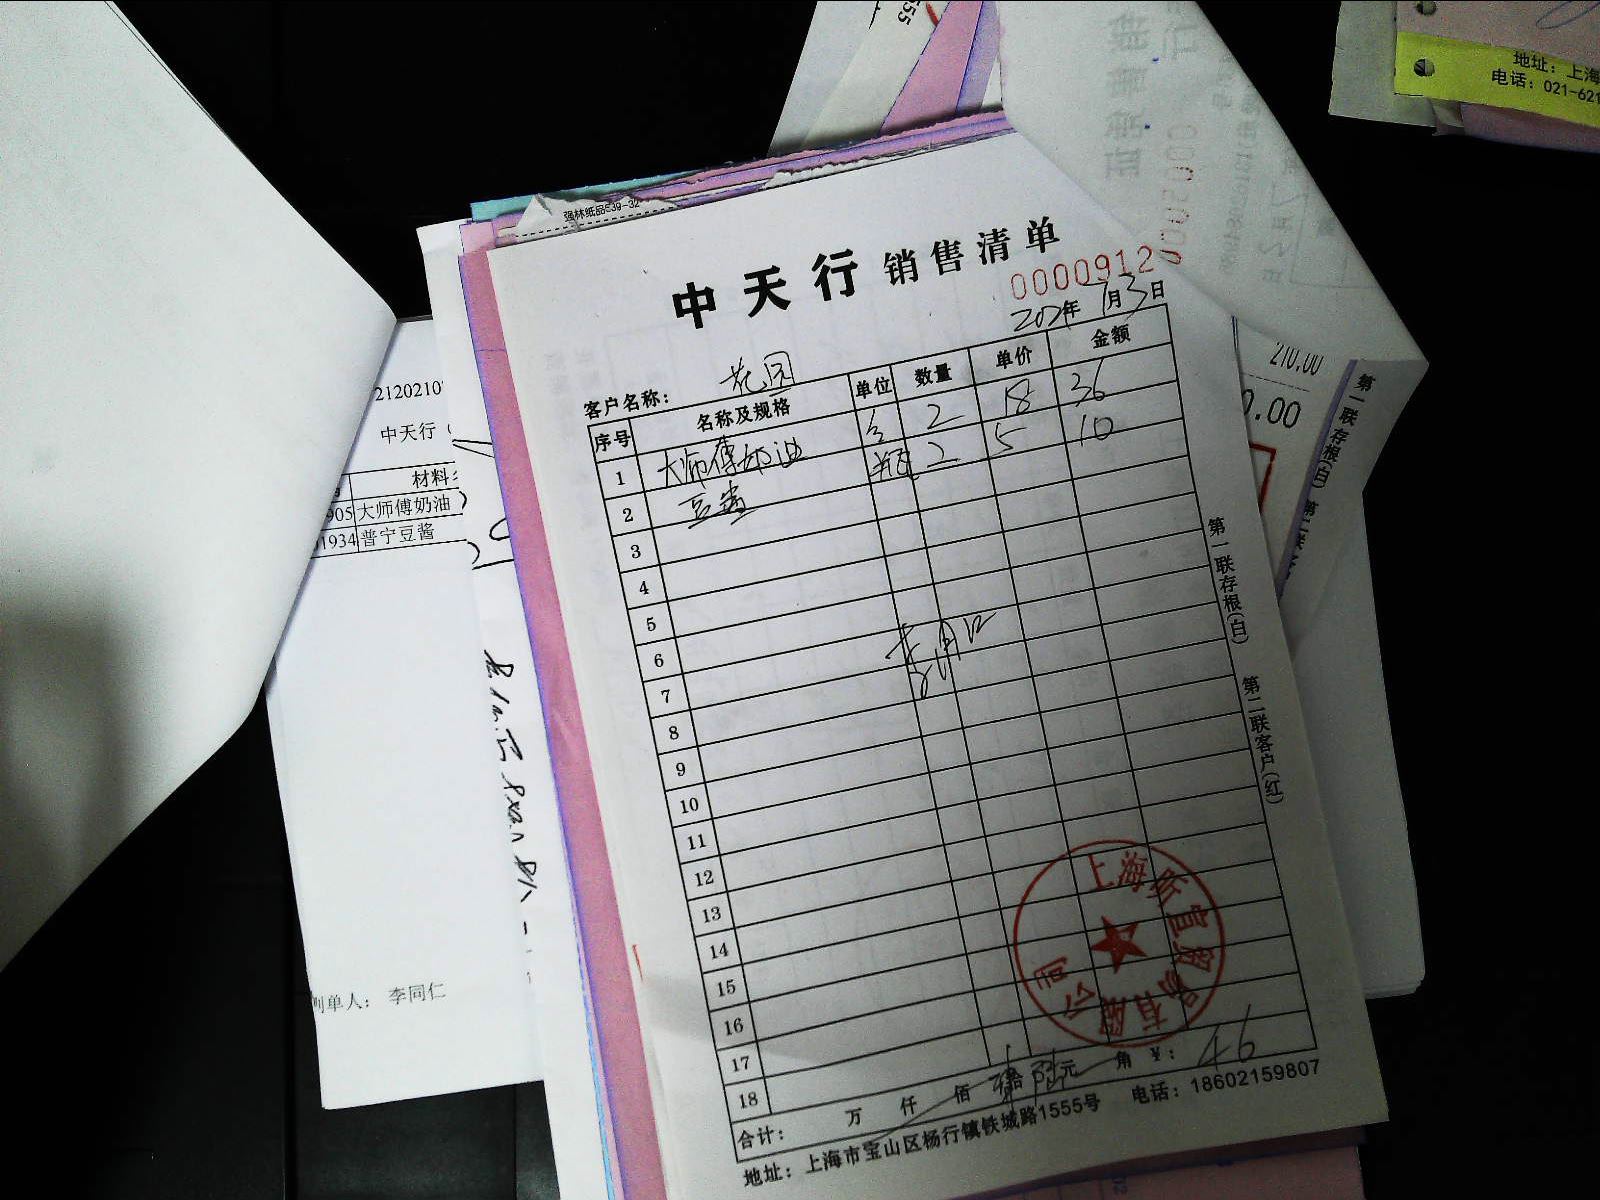 555
地址：上海
电话：021-621
强林纸品539-32
中天行 销售清单
0000912
年 月3日
客户名称：花园
序号 名称及规格 单位 数量 单价 金额
1 大师傅奶油 2 18 36
2 豆酱 瓶 2 5 10
3
4
5
6
7
8
9
10
11
12
13
14
15
16
17
18
合计： 万 仟 佰 拾 陆元 角 ¥：46
地址：上海市宝山区杨行镇铁城路1555号 电话：18602159807
第一联存根(白) 第二联客户(红)
上海 宜贸易有限公司
21202107
中天行（
材料
905 大师傅奶油
1934 普宁豆酱
制单人： 李同仁
210.00
0.00
第一联存根(白) 第二联